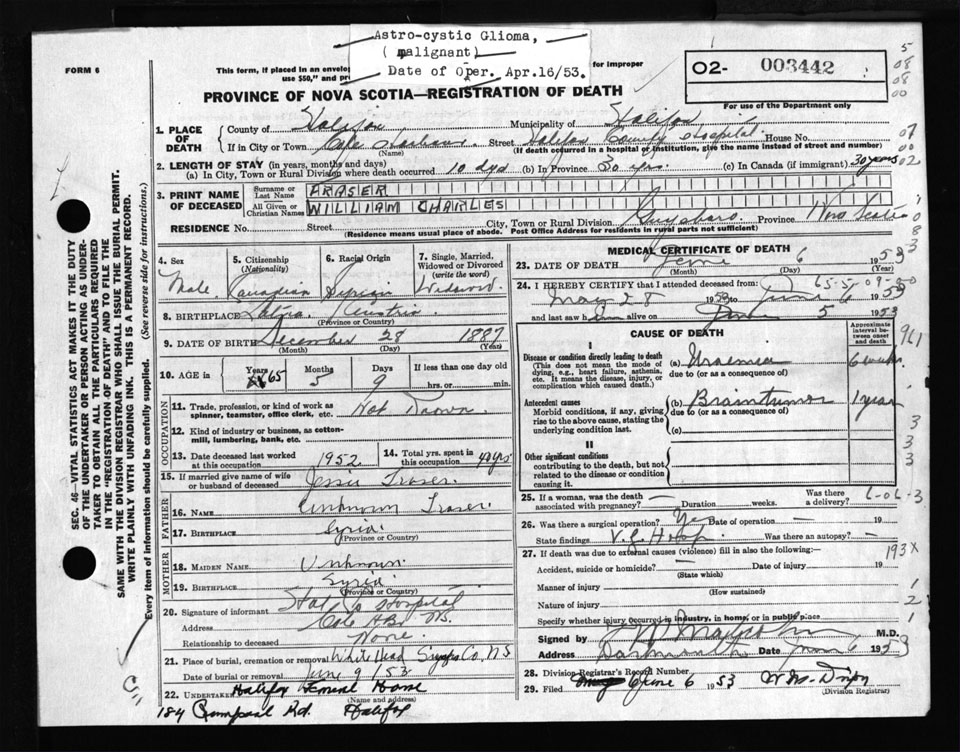 Astro-cystic Glioma,
( malignant)
Date of Oper. Apr.16/53.
FORM 6
This form, if placed in an envelope for improper
use $50," and
02- 003442
For use of the Department only
PROVINCE OF NOVA SCOTIA—REGISTRATION OF DEATH
1. PLACE OF DEATH
County of Halifax Municipality of Halifax
If in City or Town Cole Harbour Street Halifax County Hospital House No.
(Name) (If death occurred in a hospital or institution, give the name instead of street and number)
2. LENGTH OF STAY (in years, months and days)
(a) In City, Town or Rural Division where death occurred 10 dys (b) In Province 30 yrs. (c) In Canada (if immigrant) 30 years
3. PRINT NAME OF DECEASED
Surname or Last Name FRASER
All Given or Christian Names WILLIAM CHARLES
RESIDENCE No. Street City, Town or Rural Division Guysboro Province Nova Scotia
(Residence means usual place of abode. Post Office Address for residents in rural parts not sufficient)
4. Sex Male
5. Citizenship (Nationality) Canadian
6. Racial Origin Syrian
7. Single, Married, Widowed or Divorced (write the word) Widowed
8. BIRTHPLACE
(Province or Country)
9. DATE OF BIRTH December 28 1887
(Month) (Day) (Year)
10. AGE in Years 65 Months 5 Days 9 If less than one day old
hrs. or min.
OCCUPATION
11. Trade, profession, or kind of work as spinner, teamster, office clerk, etc. Not Known
12. Kind of industry or business, as cotton-mill, lumbering, bank, etc.
13. Date deceased last worked at this occupation 1952
14. Total yrs. spent in this occupation yrs
15. If married give name of wife or husband of deceased Jessie Fraser
FATHER
16. Name Unknown Fraser
17. Birthplace Syria
(Province or Country)
MOTHER
18. MAIDEN NAME Unknown
19. BIRTHPLACE Syria
(Province or Country)
20. Signature of informant Hal Co Hospital
Address Cole Hbr NS.
Relationship to deceased None
21. Place of burial, cremation or removal White Head Guys Co, NS
Date of burial or removal June 9 / 53
22. UNDERTAKER Halifax Funeral Home
(Name and address)
184 Rd. Halifax
MEDICAL CERTIFICATE OF DEATH
23. DATE OF DEATH June 6 1953
(Month) (Day) (Year)
24. I HEREBY CERTIFY that I attended deceased from:
May 28 1953 to June 6 1953
and last saw him alive on June 5 1953
CAUSE OF DEATH
Approximate interval between onset and death
I
Disease or condition directly leading to death (a) Uraemia 6 weeks
(This does not mean the mode of dying, e.g., heart failure, asthenia, etc. It means the disease, injury, or complication which caused death.)
due to (or as a consequence of)
Antecedent causes (b) Braintumor 1 year
Morbid conditions, if any, giving rise to the above cause, stating the underlying condition last.
due to (or as a consequence of)
(c)
II
Other significant conditions
contributing to the death, but not related to the disease or condition causing it.
25. If a woman, was the death associated with pregnancy? Duration weeks. Was there a delivery?
26. Was there a surgical operation? Yes Date of operation 19
State findings V.G. Hosp. Was there an autopsy?
27. If death was due to external causes (violence) fill in also the following:—
Accident, suicide or homicide? Date of injury 19
(State which)
Manner of injury
(How sustained)
Nature of injury
Specify whether injury occurred in industry, in home, or in public place
Signed by M.D.
Address Dartmouth Date June 6 1953
28. Division Registrar's Record Number
29. Filed June 6 1953
(Division Registrar)
SEC. 46—VITAL STATISTICS ACT MAKES IT THE DUTY
OF THE UNDERTAKER OR PERSON ACTING AS UNDER-
TAKER TO OBTAIN ALL THE PARTICULARS REQUIRED
IN THE "REGISTRATION OF DEATH" AND TO FILE THE
SAME WITH THE DIVISION REGISTRAR WHO SHALL ISSUE THE BURIAL PERMIT.
WRITE PLAINLY WITH UNFADING INK. THIS IS A PERMANENT RECORD.
Every item of information should be carefully supplied. (See reverse side for instructions.)